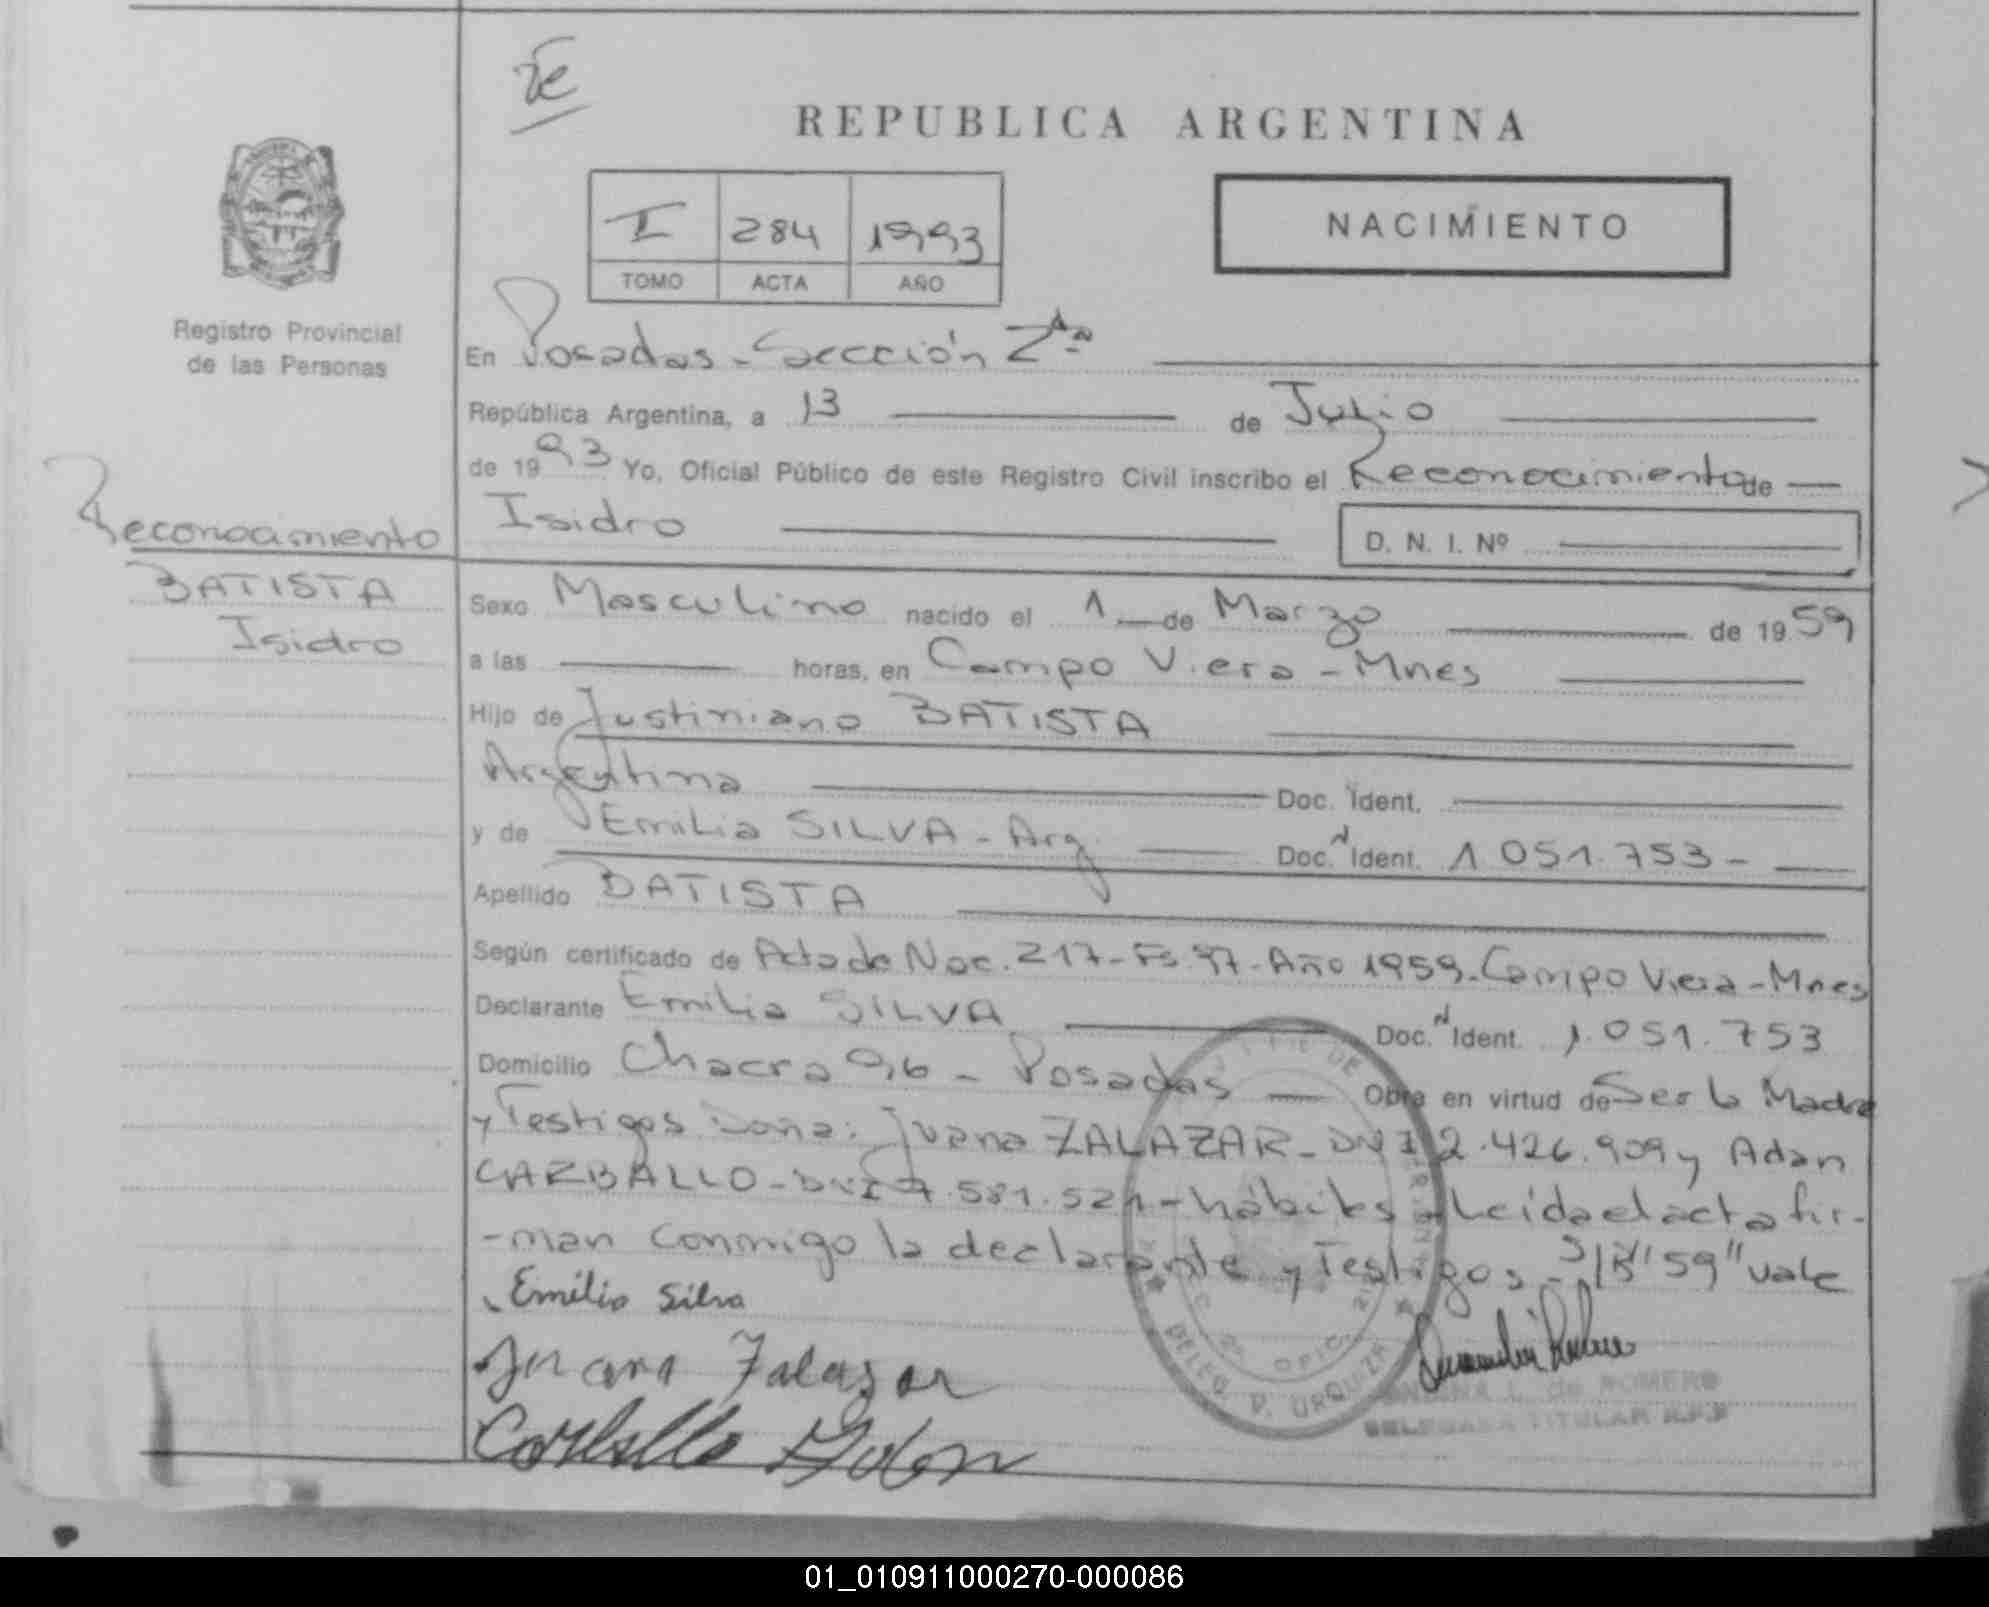 REPUBLICA ARGENTINA
I 284 1993
TOMO ACTA AÑO
NACIMIENTO
Registro Provincial
de las Personas
En Posadas - Sección 2da
República Argentina, a 13 de Julio
de 1993 Yo, Oficial Público de este Registro Civil inscribo el Reconocimiento de
Isidro D. N. I. Nº
Reconocimiento
BATISTA
Isidro
Sexo Masculino nacido el 1 de Marzo de 1959
a las horas, en Campo Viera - Mnes
Hijo de Justiniano BATISTA
Argentina Doc. Ident.
y de Emilia SILVA - Arg. Doc. N Ident. 1.051.753 -
Apellido BATISTA
Según certificado de Acta de Nac. 217 - Fs. 97 - Año 1959 - Campo Viera - Mnes
Declarante Emilia SILVA Doc. N Ident. 1.051.753
Domicilio Chacra 96 - Posadas Obra en virtud de Ser la Madre
y Testigos Doña: Juana ZALAZAR - DNI 2.426.909 y Adan
CARBALLO - DNI 7.581.521 - hábiles - Leída el acta fir-
-man conmigo la declarante y Testigos - S/R "59" vale
Emilia Silva
Juana Zalazar
Carballo Adan
DELEG. P. URQUIZA
L. de ROMERO
DELEGADA TITULAR R.P.P
01_010911000270-000086